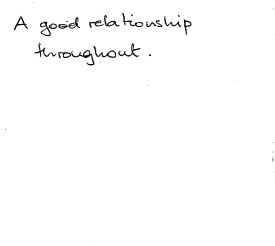 A good relationship
throughout.